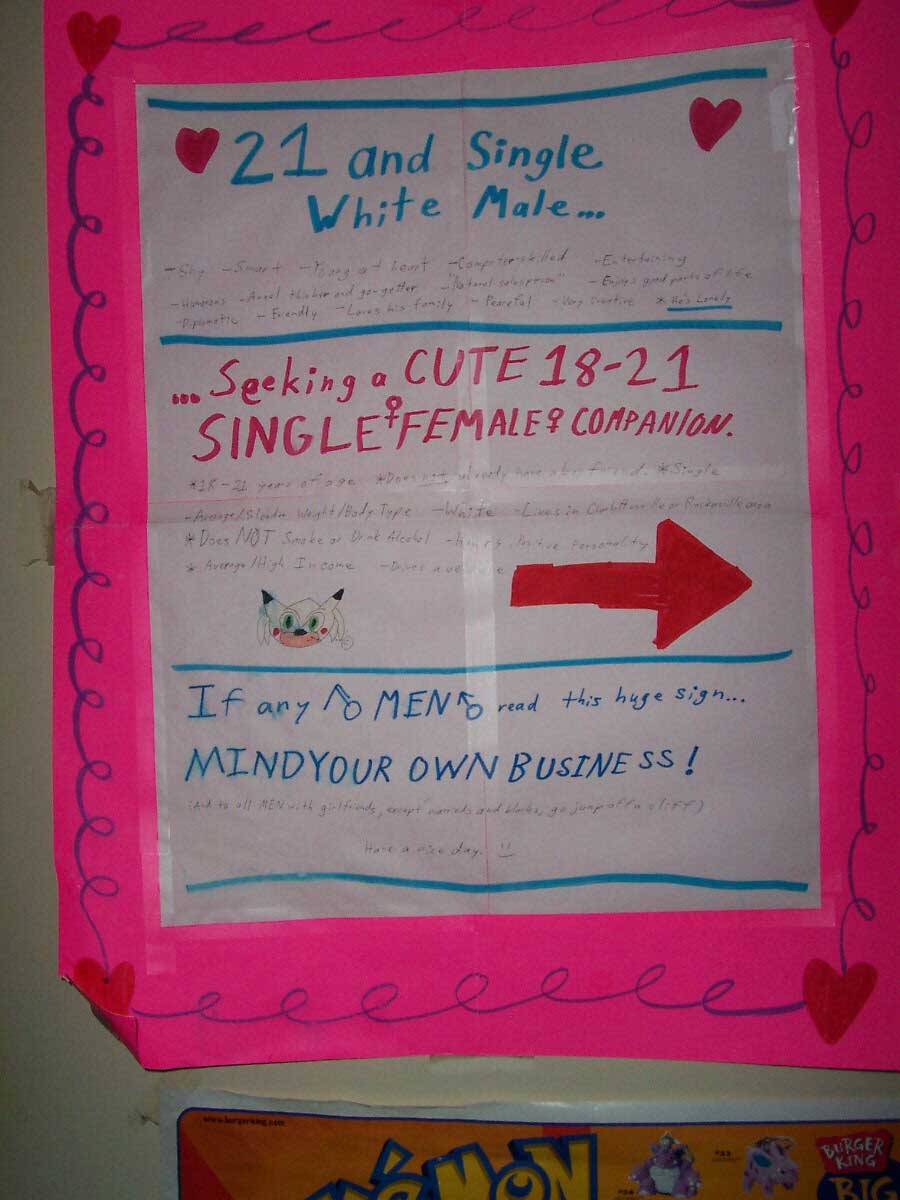 21 and Single
White Male...
-Shy -Smart -Young at heart -Computer skilled -Entertaining
-Humorous -Avid thinker and go-getter -"Natural salesperson" -Enjoys good parts of life
-Diplomatic -Friendly -Loves his family -Peaceful -Very Creative *He's Lonely
...Seeking a CUTE 18-21
SINGLE♀FEMALE♀COMPANION.
*18-21 years of age *Does not already have a boyfriend. *Single
-Average/Slender Weight/Body Type -White -Lives in Charlottesville or Ruckersville area
*Does NOT Smoke or Drink Alcohol Positive Personality
*Average/High Income -Drives a
If any ♂ MEN ♂ read this huge sign...
MIND YOUR OWN BUSINESS!
(And to all MEN with girlfriends, except and blacks, go jump off a cliff)
Have a nice day.
www.burgerking.com
POKéMON
BURGER
KING
BIG